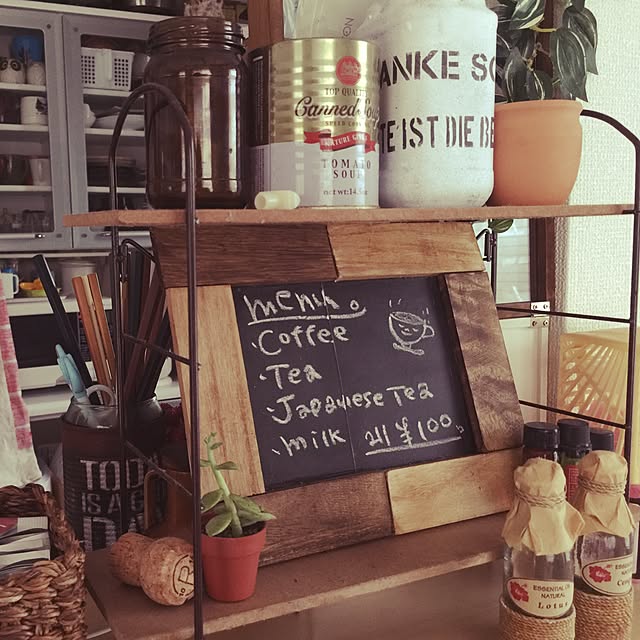 TOP QUALITY
Canned Soup
TOMATO
SOUP
net wt:14.5oz
ANKE SC
TE IST DIE BE
menu.
・Coffee
・Tea
・Japanese Tea
・milk all ¥100
TOD
IS A G
ESSENTIAL OIL
NATURAL
Lotus
ESSENTIAL OIL
NATURAL